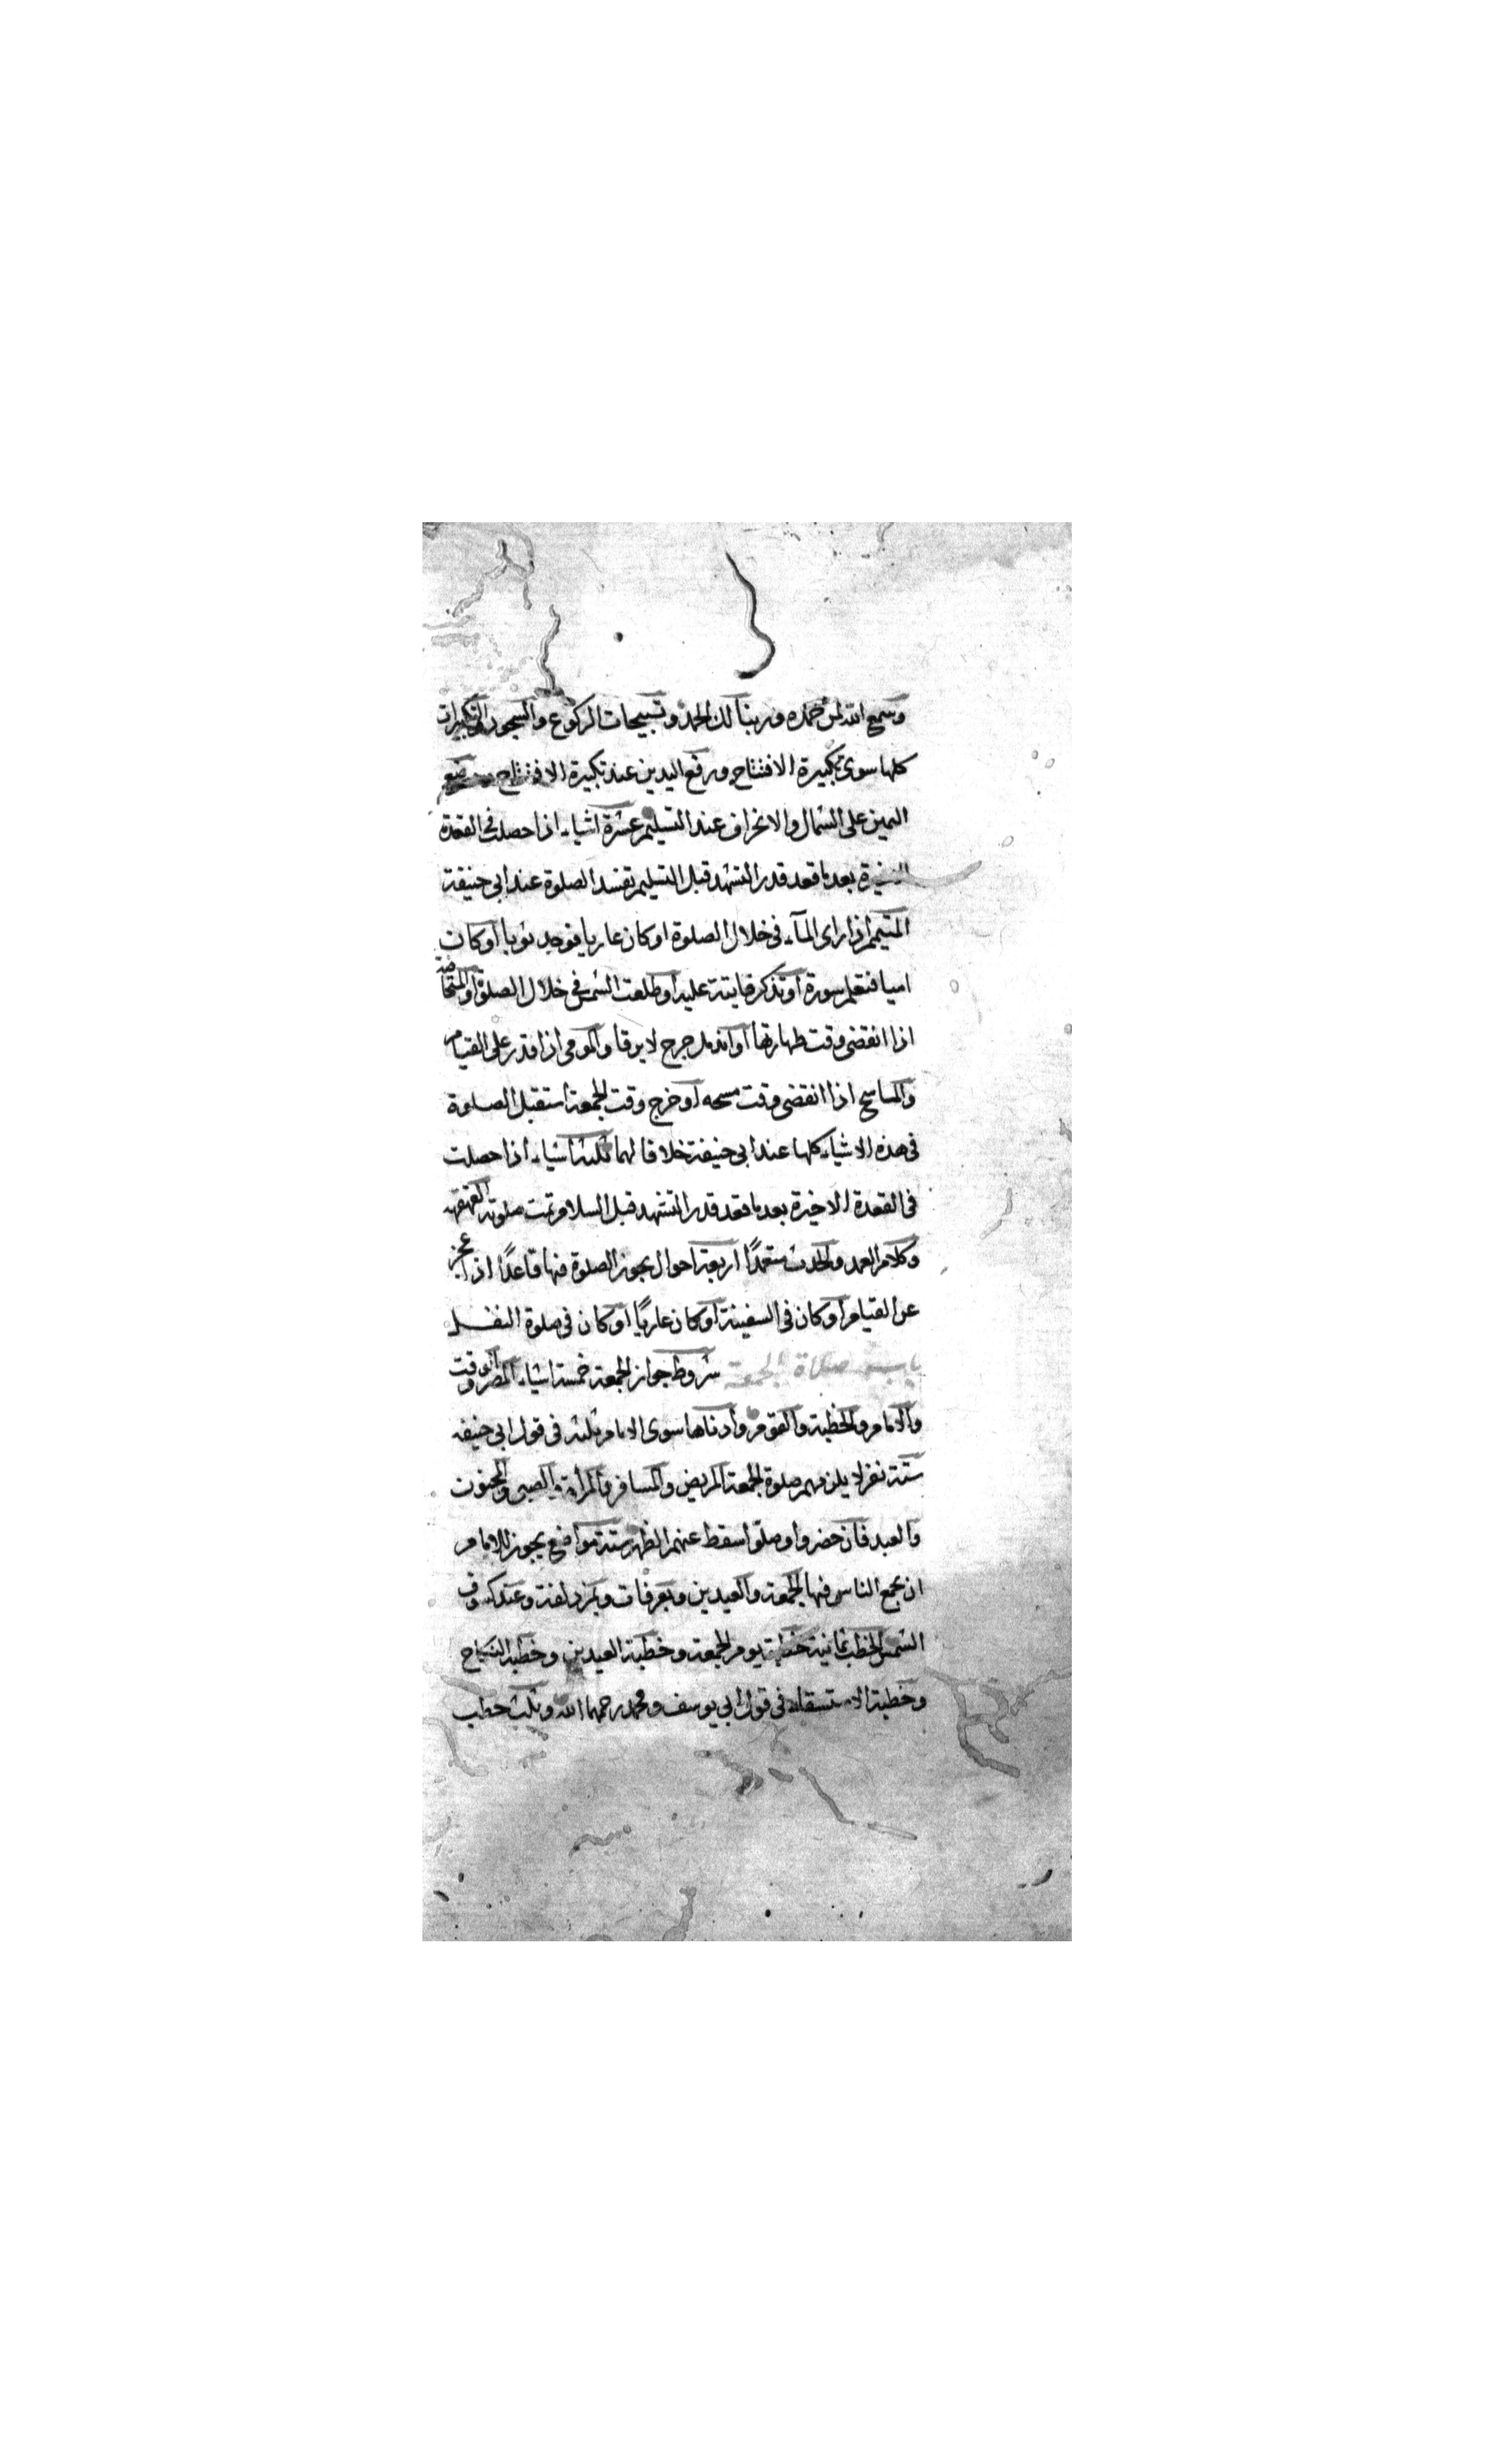 وسمع الله لمن حمده وربنا لك الحمد وتسبيحات الركوع والسجود والتكبيرات
كلها سوى تكبيرة الافتتاح ورفع اليدين عند تكبيرة الافتتاح ووضع
اليمين على الشمال والانحراف عند التسليم عشرة اشياء اذا حصلت فى القعدة
الاخيرة بعد ما قعد قدر التشهد قبل التسليم تفسد الصلوة عند ابى حنيفة
المتيمم اذا راى المآء فى خلال الصلوة او كان عاريا فوجد ثوبا او كان
اميا فتعلم سورة او تذكر فايتة عليه او طلعت الشمس فى خلال الصلوة او المستحاضة
اذا انقضى وقت طهارتها او اندمل جرح لا يرقا والمومى اذا قدر على القيام
والماسح اذا انقضى وقت مسحه او خرج وقت الجمعة استقبل الصلوة
فى هذه الاشياء كلها عند ابى حنيفة خلافا لهما ثلثة اشياء اذا حصلت
فى القعدة الاخيرة بعد ما قعد قدر التشهد قبل السلام تمت صلوته القهقهة
وكلام العمد والحدث متعمدًا اربعة احوال يجوز الصلوة فيها قاعدًا اذا عجز
عن القيام او كان فى السفينة او كان عاريًا او كان فى صلوة النفل
باب صلاة الجمعة شروط جواز الجمعة خمسة اشياء المصر والوقت
والامام والخطبة والقوم وادناها سوى الامام ثلثة فى قول ابى حنيفه
ستة نفر لا يلزمهم صلوة الجمعة المريض والمسافر والمرأة والصبى والمجنون
والعبد فان حضروا وصلوا سقط عنهم الظهر ستة مواضع يجوز للامام
ان يجمع الناس فيها الجمعة والعيدين وبعرفات وبمزدلفة وعند كسوف
الشمس الخطب ثمانية خطبة يوم الجمعة وخطبة العيدين وخطبة النكاح
وخطبة الاستسقاء فى قول ابى يوسف ومحمد رحمهما الله وثلث خطب